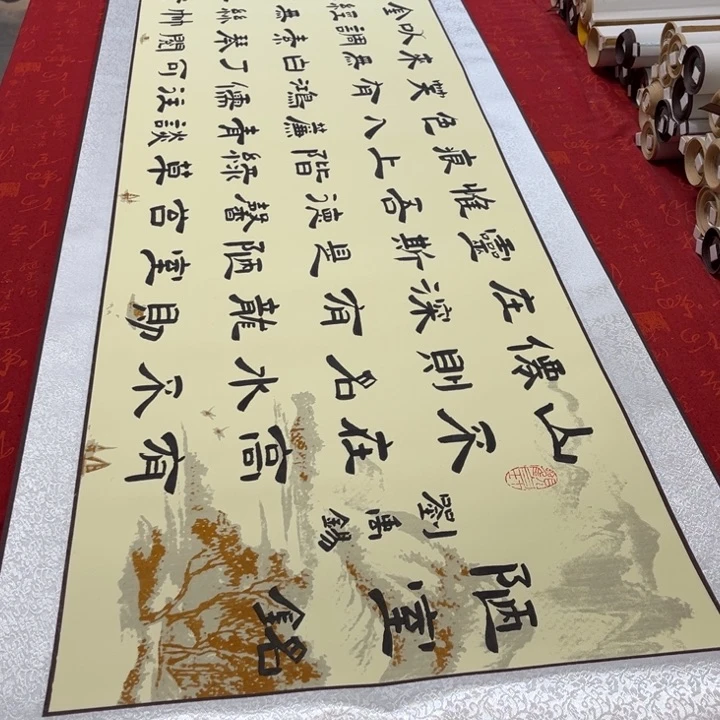 陋室銘
劉禹錫
山不在高有
僊則名水不
在深有龍則
靈斯是陋室
惟吾德馨苔
痕上階綠草
色入簾青談
笑有鴻儒往
來無白丁可
以調素琴閱
金經無絲竹